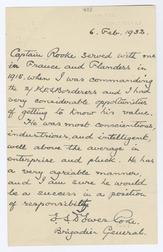 6. Feb. 1932.
Captain Rooke served with me
in France and Flanders in
1915, when I was commanding
the 2/K.O.S. Borderers and I had
very considerable opportunities
of getting to know his value.
He was most conscientious
industrious, and intelligent,
well above the average in
enterprise and pluck. He has
a very agreable manner,
and I am sure he would
be a success in a position
of responsibility
Brigadier General.